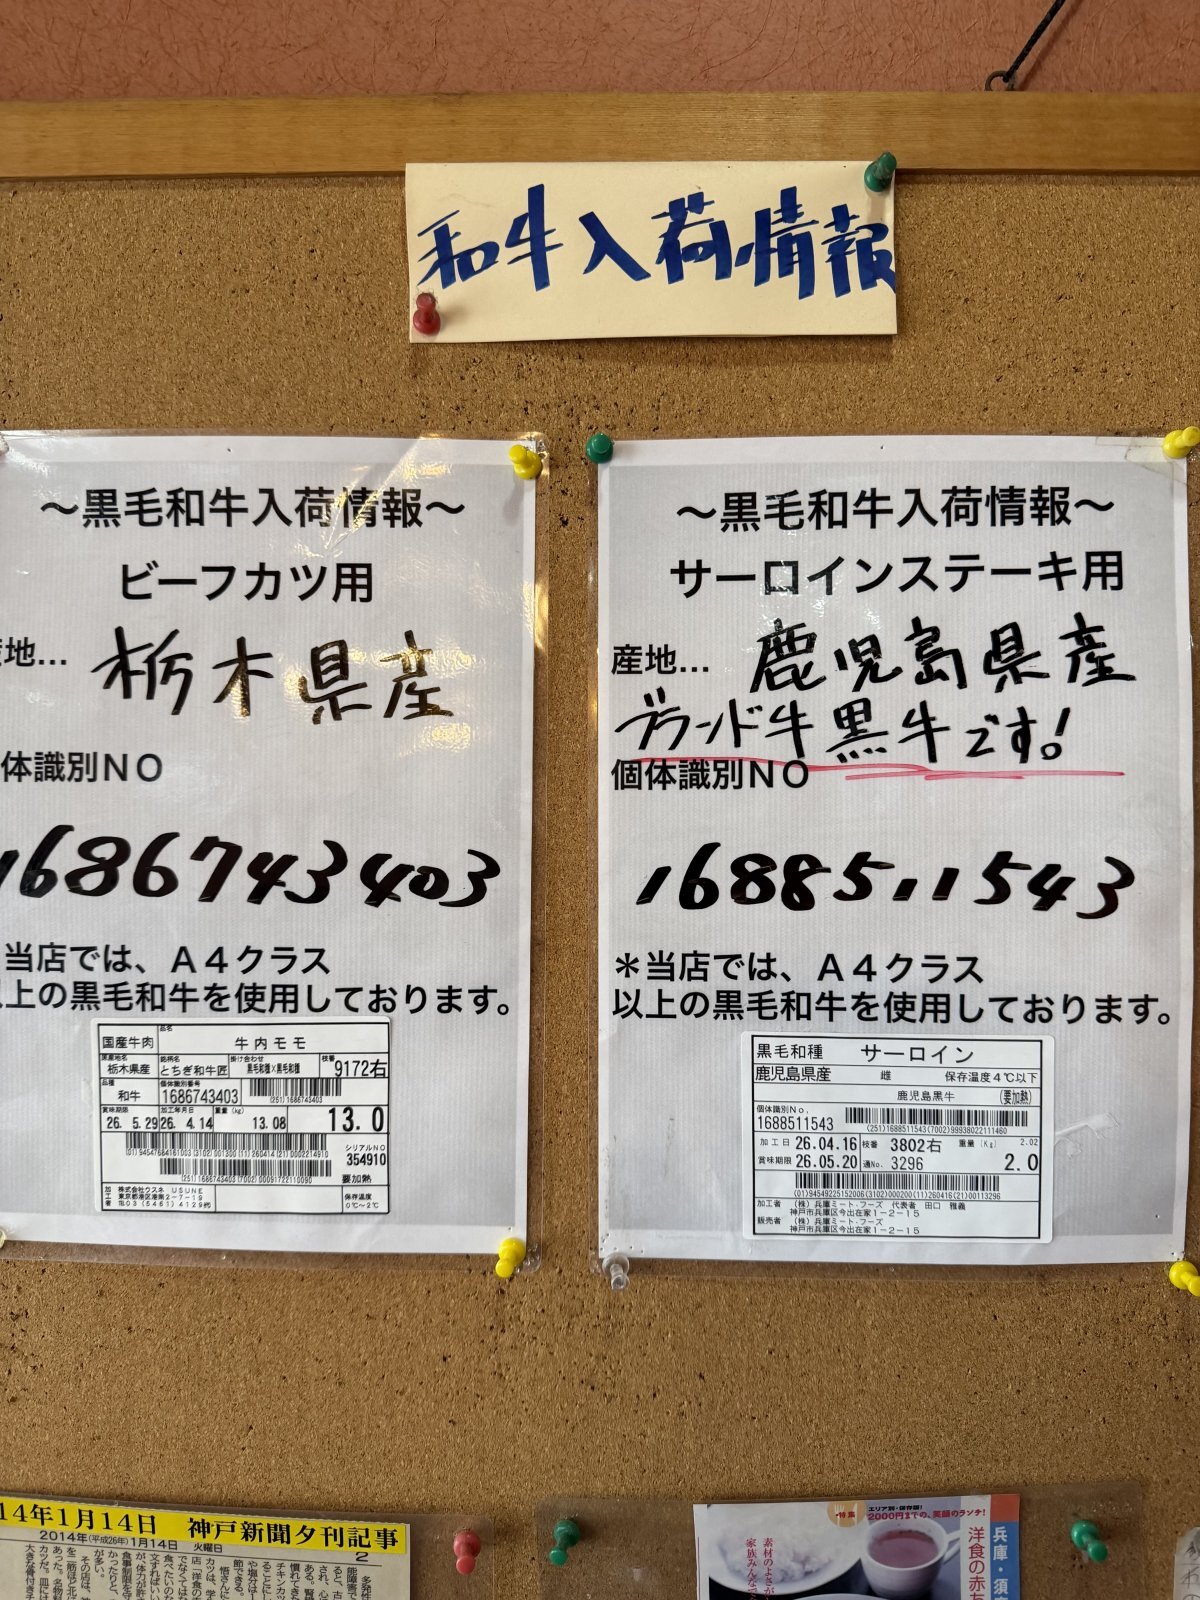 和牛入荷情報
～黒毛和牛入荷情報～
ビーフカツ用
地…
栃木県産
体識別NO
1686743403
当店では、A4クラス
上の黒毛和牛を使用しております。
国産牛肉
品名
牛内モモ
原産地名
栃木県産
銘柄名
とちぎ和牛匠
掛け合わせ
黒毛和種×黒毛和種
枝番
9172右
品種
和牛
個体識別番号
1686743403
(251)1686743403
賞味期限
26. 5.29
加工年月日
26. 4.14
重量(kg)
13.08
13.0
シリアルNO
354910
(251)1686743403(7002)00091722110090
要加熱
株式会社ウスネ USUNE
東京都港区港南2-7-19
TEL03(5461)4129代
保存温度
0℃～2℃
～黒毛和牛入荷情報～
サーロインステーキ用
産地…
鹿児島県産
ブランド牛黒牛です!
個体識別NO
1688511543
＊当店では、A4クラス
以上の黒毛和牛を使用しております。
黒毛和種 サーロイン
鹿児島県産 雌 保存温度4℃以下
鹿児島黒牛 (要加熱)
個体識別No.
1688511543
(251)1688511543(7002)99938022111460
加工日 26.04.16 枝番 3802右 重量(Kg) 2.02
賞味期限 26.05.20 通No. 3296 2.0
(01)94549225152006(3102)000200(11)260416(21)00113296
加工者 (株)兵庫ミート・フーズ 代表者 田口 雅義
神戸市兵庫区今出在家1-2-15
販売者 (株)兵庫ミート・フーズ
神戸市兵庫区今出在家1-2-15
14年1月14日 神戸新聞夕刊記事
2014年(平成26年)1月14日 火曜日
2
特集
エリア別・保存版!
2000円までの、笑顔のランチ!
兵庫・須
洋食の赤
素材のよさが
家族みんなで